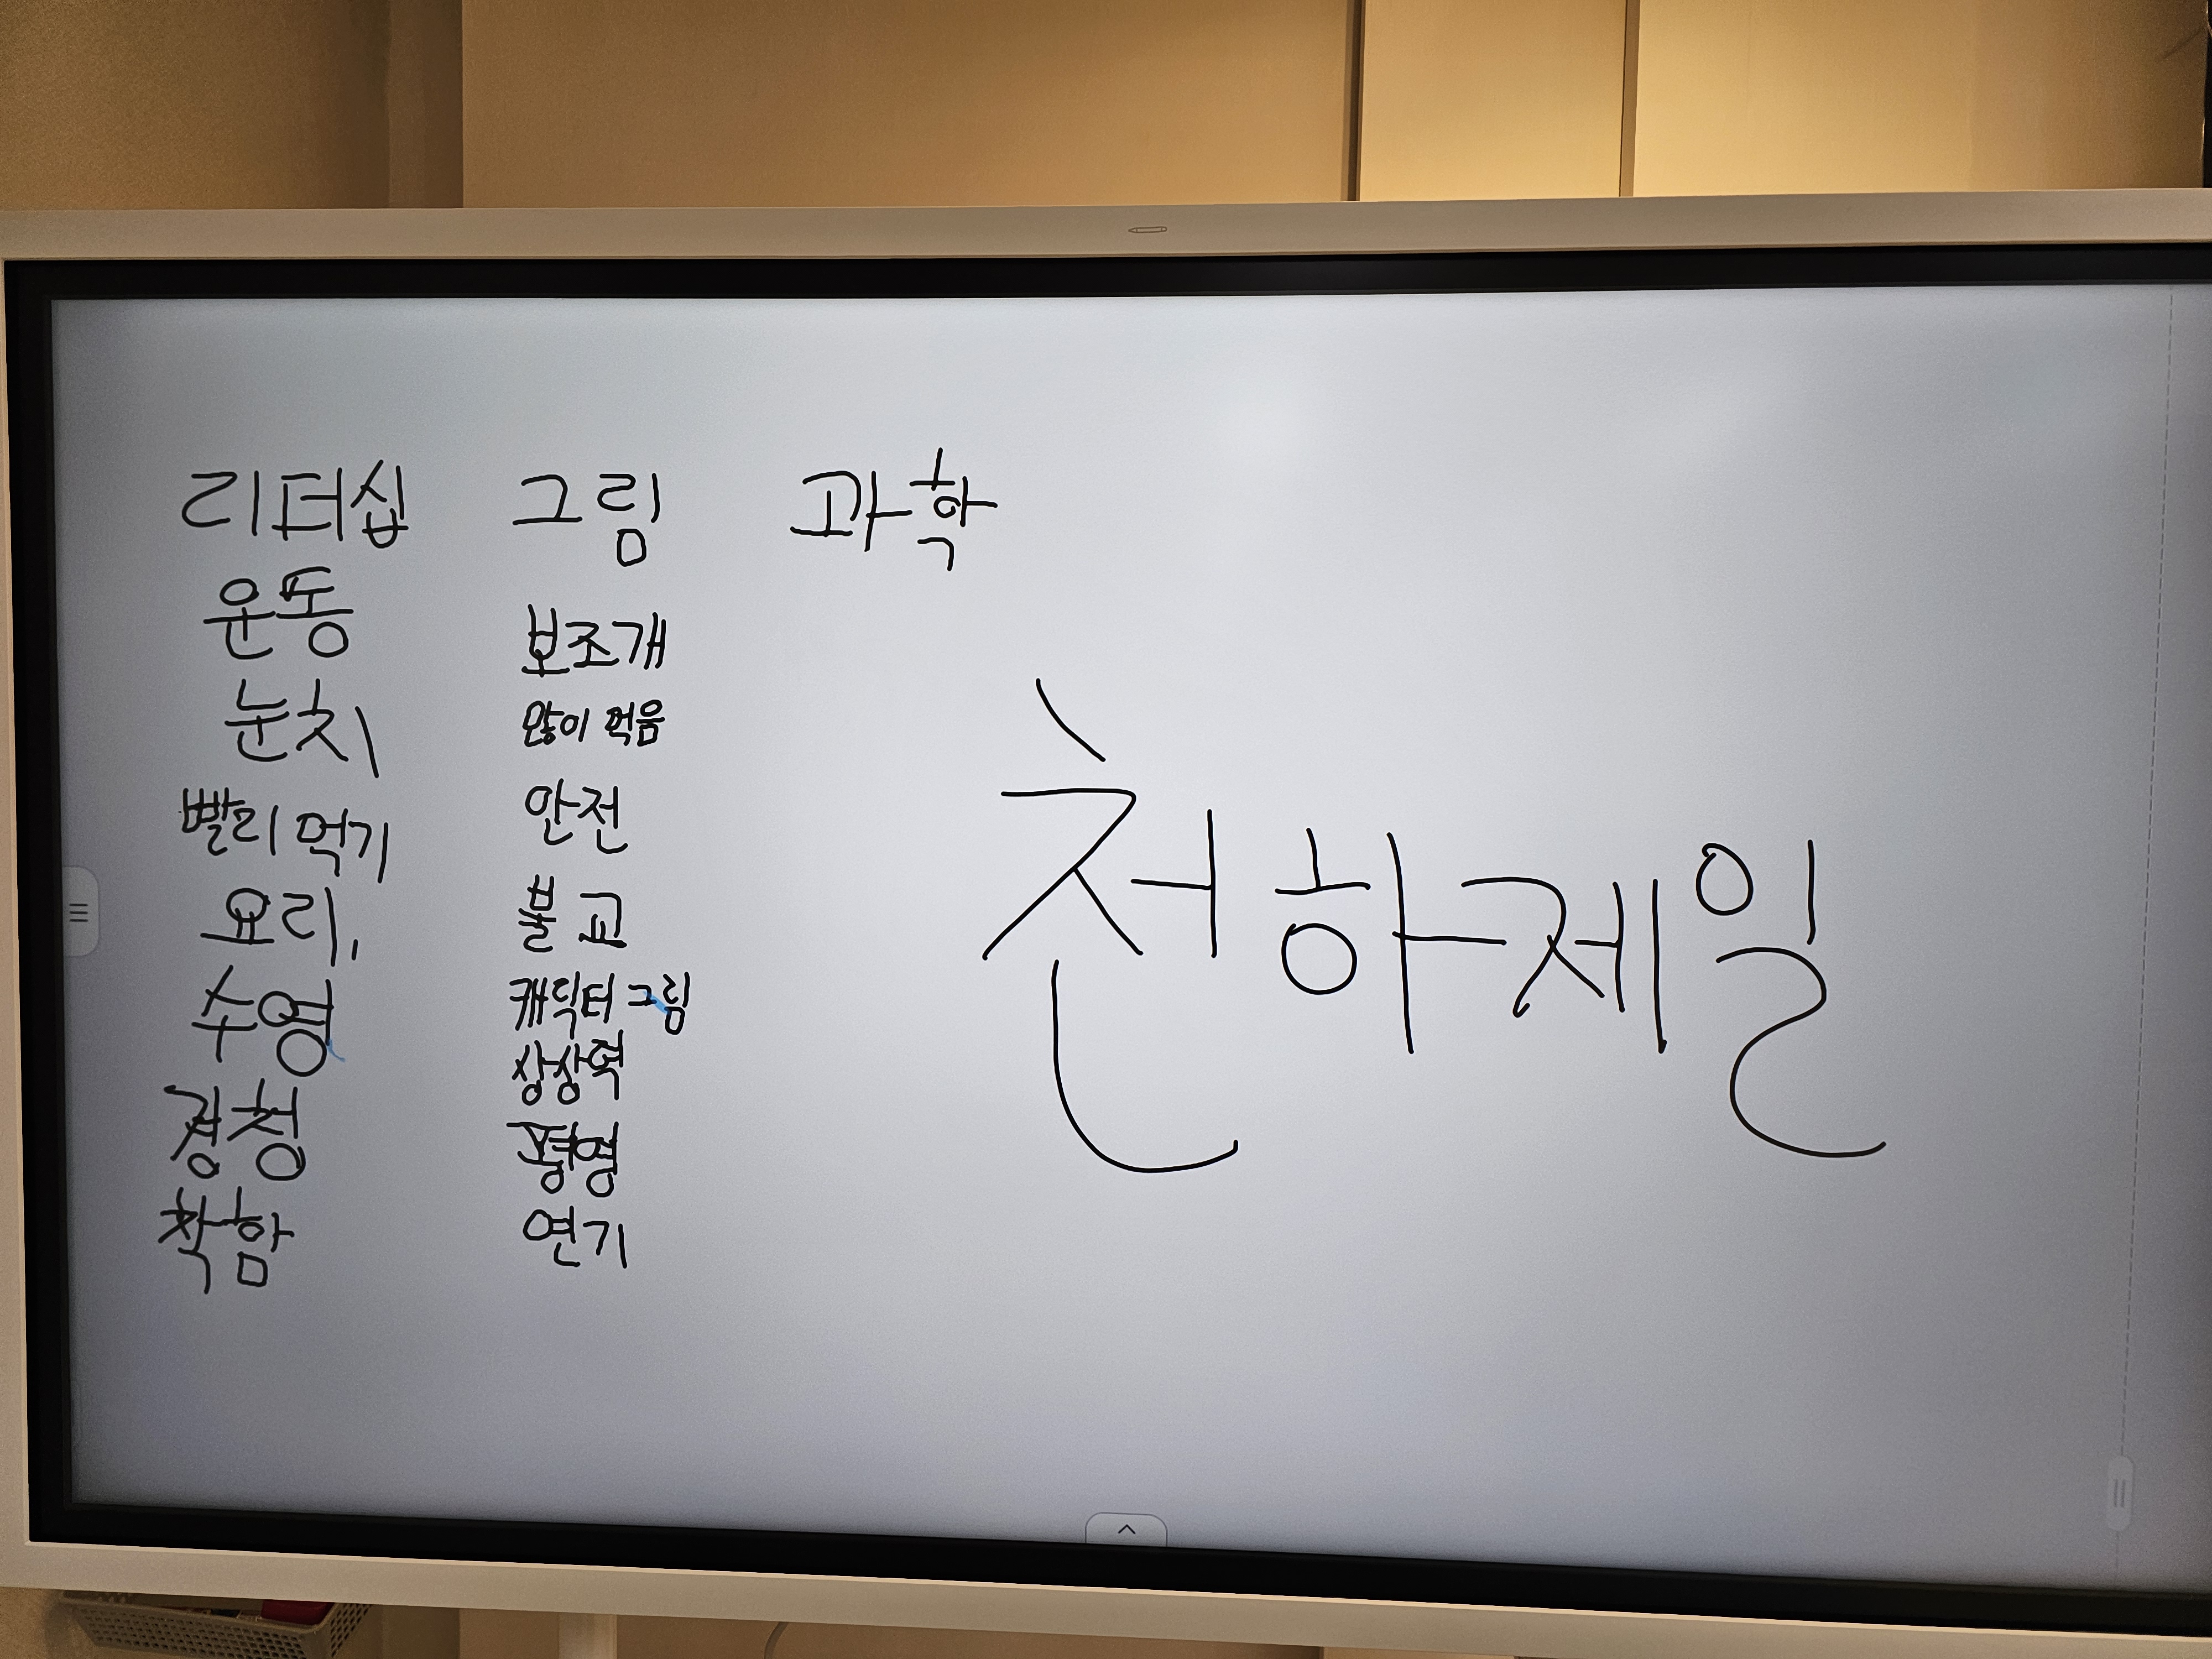 리더십 그림 과학
운동
눈치
빨리 먹기
요리,
수영
경청
착함
보조개
많이 먹음
안전
불교
캐릭터 그림
상상력
평영
연기
천하제일